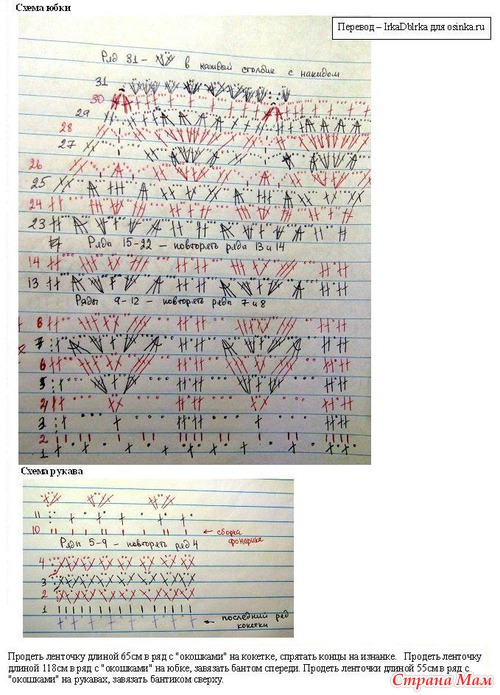 Схема юбки
Перевод – IrkaDbIrka для osinka.ru
Ряд 31 – в каждый столбик с накидом
31
30
29
28
27
26
25
24
23
Ряда 15-22 – повторять ряда 13 и 14
14
13
Ряды 9-12 – повторять ряда 7 и 8
8
7
6
5
4
3
2
1
Схема рукава
11
10
сборка фонарика
Ряды 5-9 – повторять ряд 4
4
3
2
1
последний ряд
кокетки
Продеть ленточку длиной 65см в ряд с "окошками" на кокетке, спрятать концы на изнанке. Продеть ленточку
длиной 118см в ряд с "окошками" на юбке, завязать бантом спереди. Продеть ленточки длиной 55см в ряд с
"окошками" на рукавах, завязать бантиком сверху.
Страна Мам